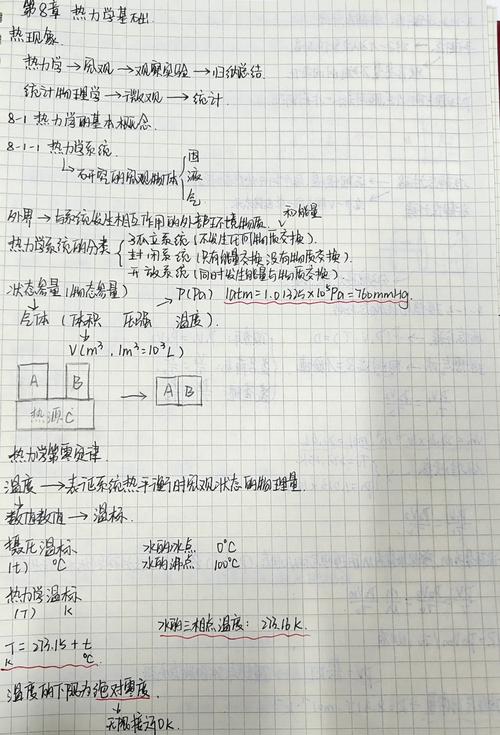 第8章 热力学基础
热现象
热力学→宏观→观察实验→归纳总结
统计物理学→微观→统计
8-1 热力学的基本概念
8-1-1 热力学系统
↳研究的宏观物体{固
液
气
外界→与系统发生相互作用的外部环境物质 和能量
热力学系统的分类{孤立系统(不发生任何物质交换).
封闭系统(只有能量交换没有物质交换).
开放系统(同时发生能量与物质交换).
状态参量(物态参量) →P(Pa) 1atm=1.01325×10⁵Pa=760mmHg
气体(体积 压强 温度).
V(m³, 1m³=10³L)
A B → A B
热源C
热力学第零定律.
温度→表征系统热平衡时宏观状态的物理量
数值→温标.
摄氏温标 水的冰点 0°C
(t) °C 水的沸点 100°C
热力学温标
(T) K
水的三相点温度: 273.16K.
T=273.15+t
K °C
温度的下限为绝对零度.
无限接近0K.